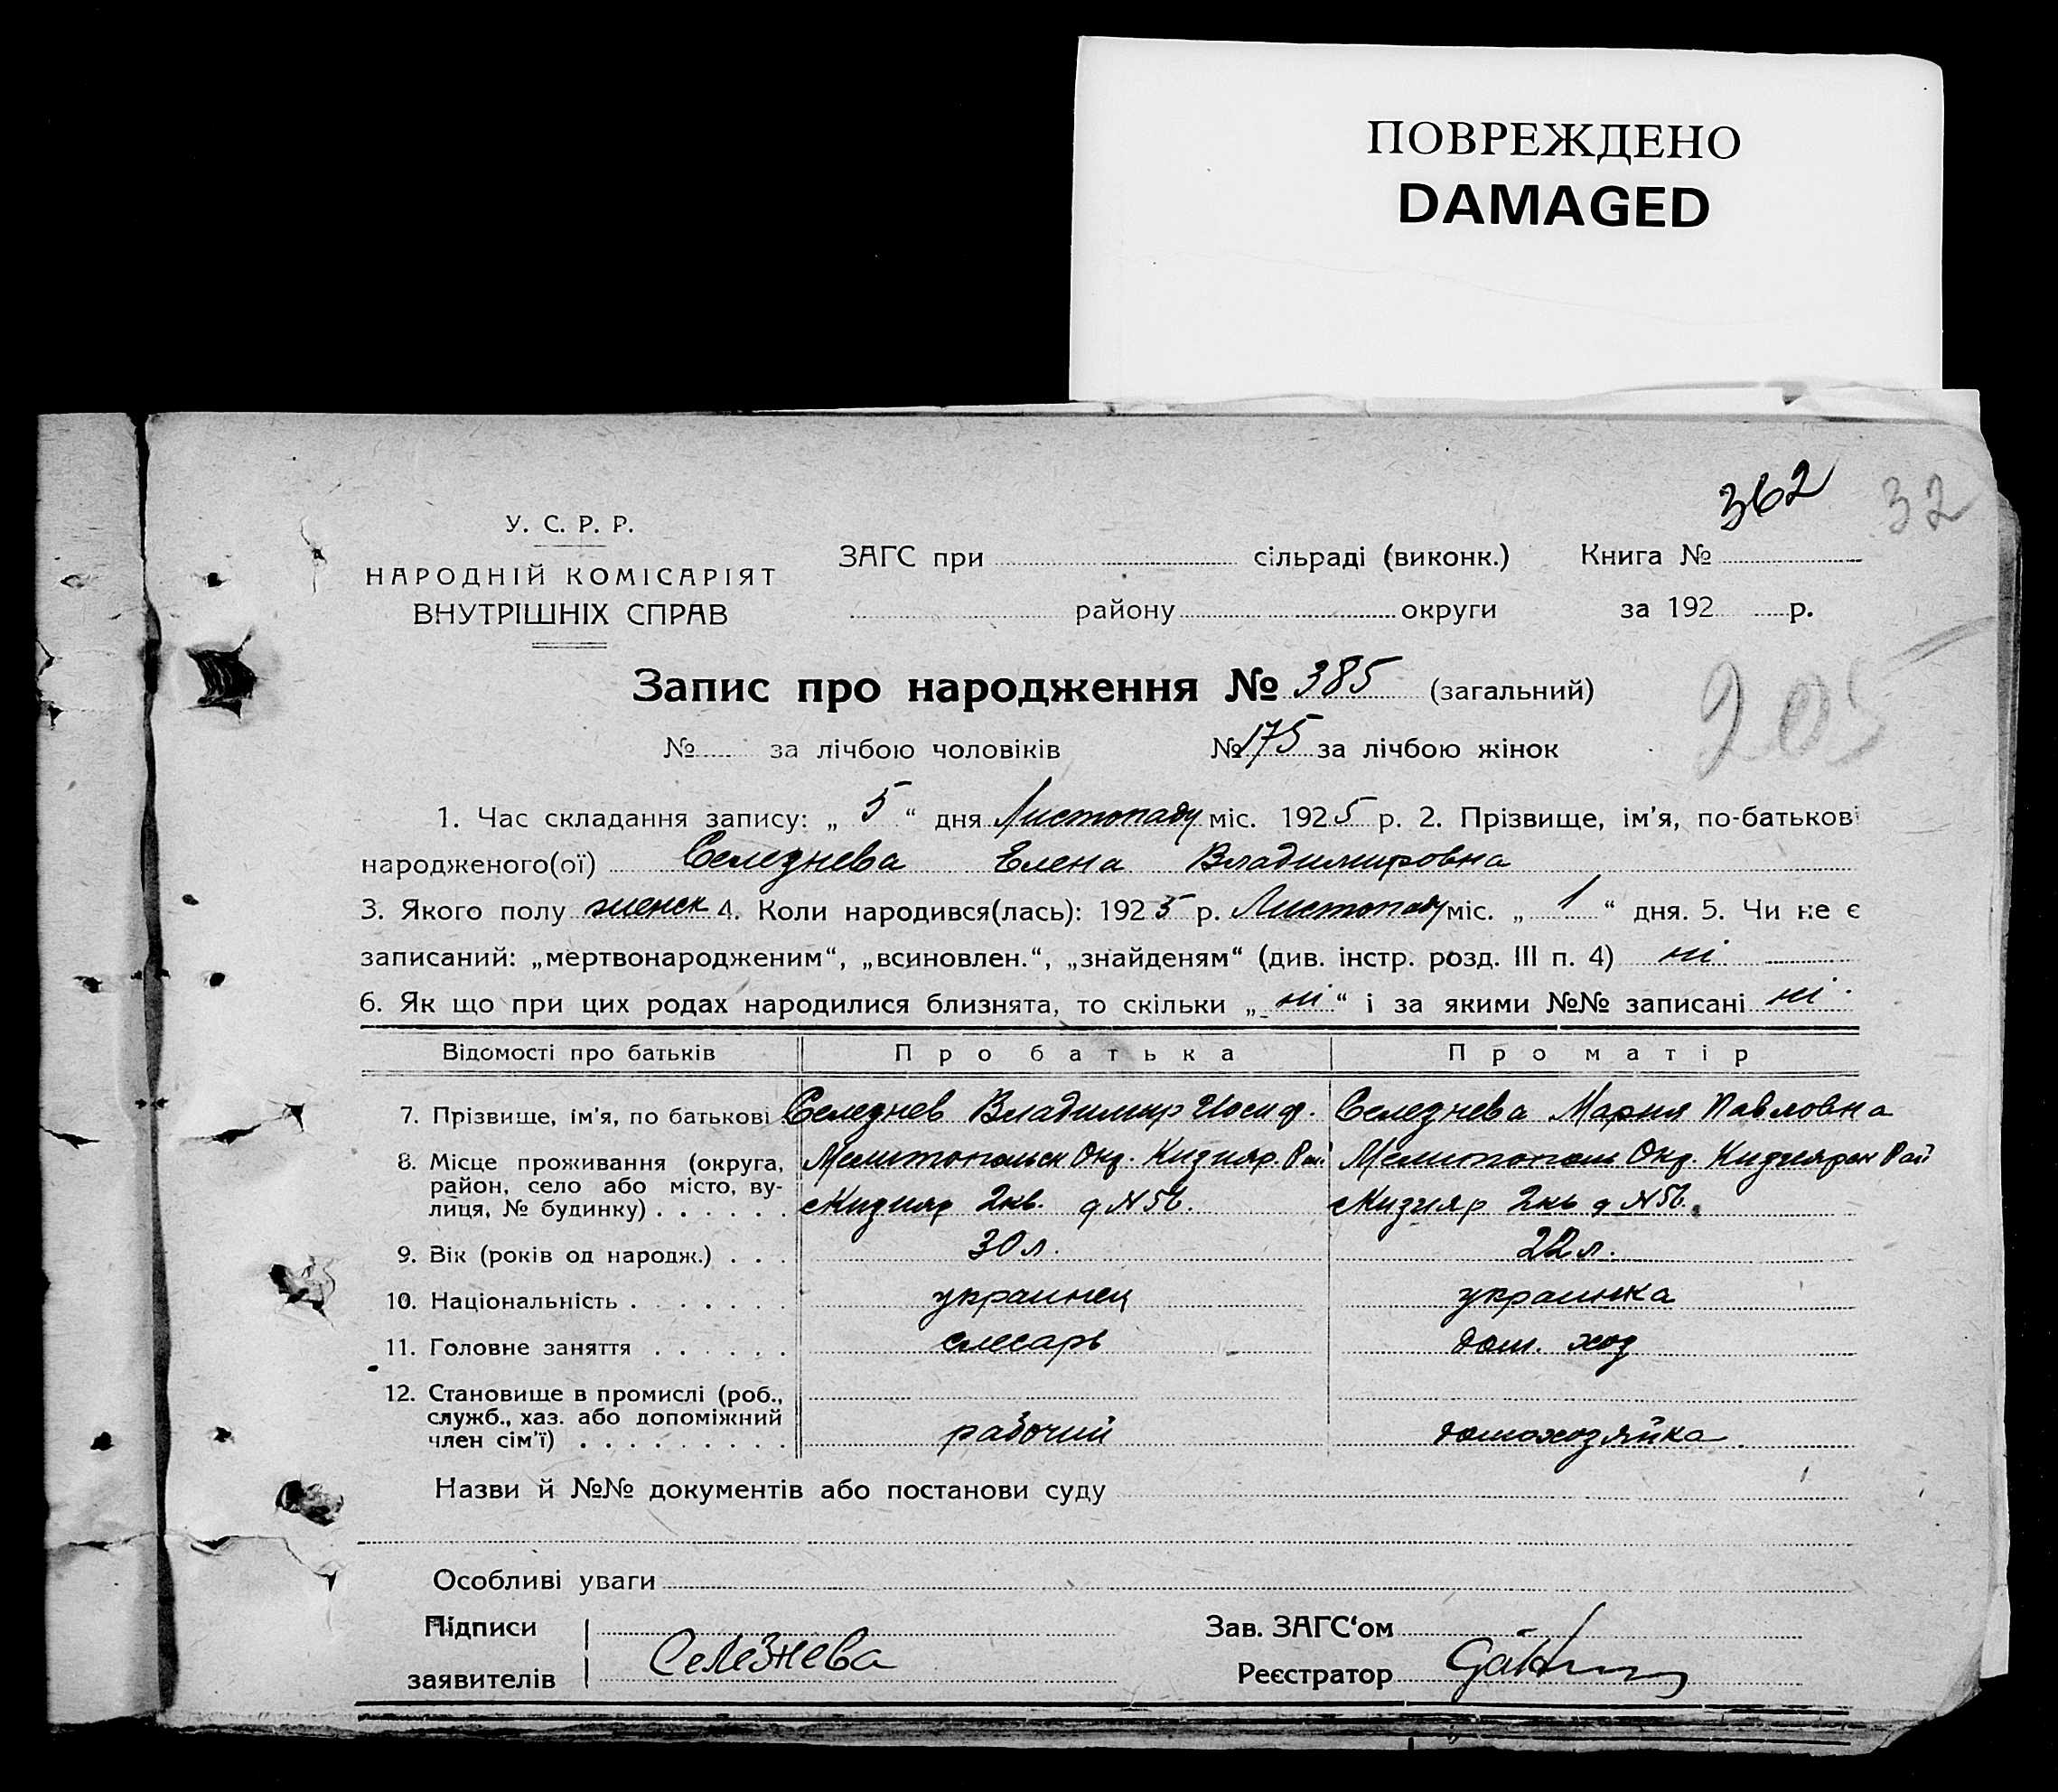 ПОВРЕЖДЕНО
DAMAGED
362 32
У. С. Р. Р.
НАРОДНІЙ КОМІСАРІЯТ
ВНУТРІШНІХ СПРАВ
ЗАГС при сільраді (виконк.) Книга №
району округи за 192 р.
205
Запис про народження № 385 (загальний)
№ за лічбою чоловіків № 175 за лічбою жінок
1. Час складання запису: „ 5 “ дня Листопаду міс. 1925 р. 2. Прізвище, ім'я, по-батькові
народженого(ої) Селезнева Елена Владимировна
3. Якого полу женск 4. Коли народився(лась): 1925 р. Листопаду міс. „ 1 “ дня. 5. Чи не є
записаний: „мертвонародженим“, „всиновлен.“, „знайденям“ (див. інстр. розд. III п. 4) ні
6. Як що при цих родах народилися близнята, то скільки „ ні “ і за якими №№ записані ні
Відомості про батьків Про батька Про матір
7. Прізвище, ім'я, по батькові Селезнев Владимир Иосиф. Селезнева Мария Павловна
8. Місце проживання (округа, Мелитопольск Окр. Кизияр. Рай Мелитополь Окр. Кизиярск Рай
район, село або місто, ву-
лиця, № будинку) . . . . . . сКизияр 2кв. д N 56. сКизияр 2кв д N 56.
9. Вік (років од народж.) . . . 30 л. 22 л.
10. Національність . . . . . . . украинец украинка
11. Головне заняття . . . . . . слесарь дом. хоз
12. Становище в промислі (роб.,
служб., хаз. або допоміжний
член сім'ї) . . . . . . . . . рабочий домохозяйка
Назви й №№ документів або постанови суду
Особливі уваги
Підписи Зав. ЗАГС‘ом
заявителів Селезнева Реєстратор